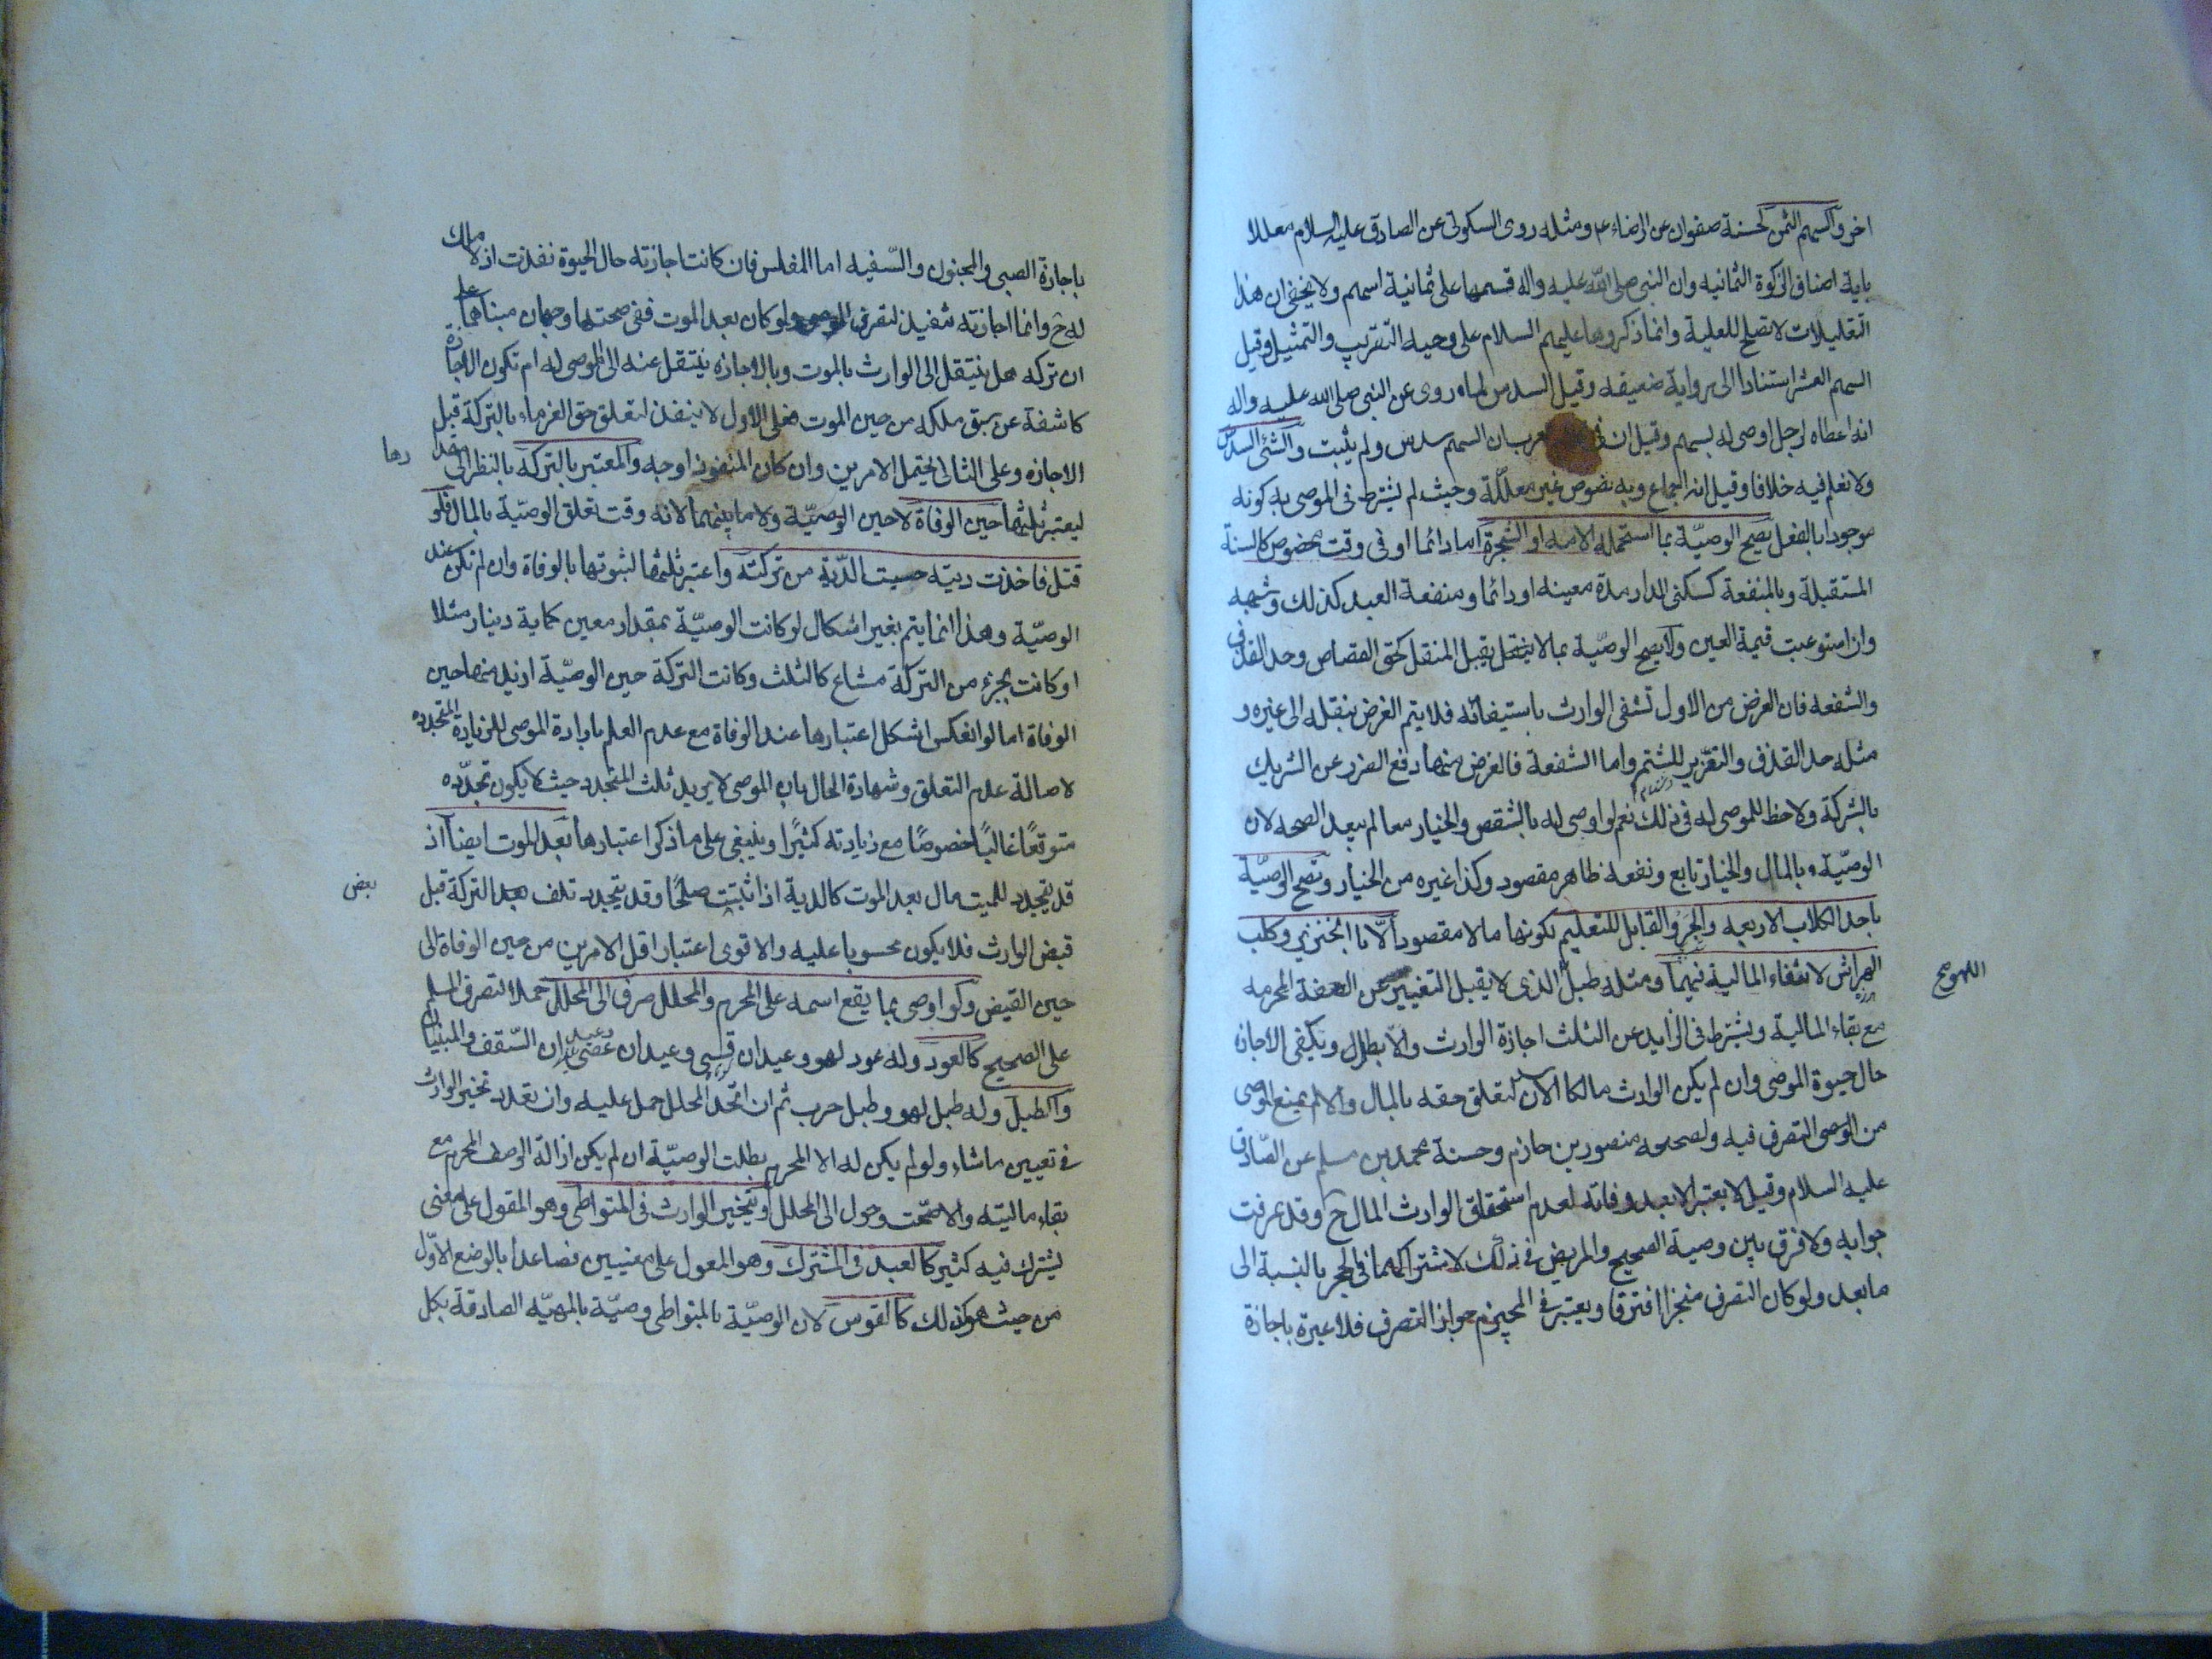 اخر والسهم الثمن لحسنة صفوان عن الرضاء ع ومثله روى السكونى عن الصادق عليه السلام معللا
باية اصناف الزكوة الثمانيه وان النبى صلى الله عليه واله قسمها على ثمانية اسهم ولا يخفى ان هذا
التعليلات لا تصلح للعلية وانما ذكروها عليهم السلام على وجه التقريب والتمثيل وقيل
السهم العشر استنادا الى رواية ضعيفه وقيل السدس لما روى عن النبى صلى الله عليه واله
انه اعطاه لرجل اوصى له بسهم وقيل ان فى العرب ان السهم سدس ولم يثبت والشئ السدس
ولا نعلم فيه خلافا وقيل انه اجماع وبه نصوص غير معللة وحيث لم يشترط فى الموصى به كونه
موجودا بالفعل يصح الوصيّة بما استحمله الامه او الشجرة اما دائما او فى وقت مخصوص كالسنة
المستقبلة وبالمنفعة كسكنى الدار مدة معينه او دائما ومنفعة العبد كذلك وشبهه
وان استوعبت قيمة العين ولا يصح الوصيّة بما لا يقبل المنقل كحق القصاص وحد القذف
والشفعه فان الغرض من الاول تشفى الوارث باستيفائه فلا يتم الغرض بنقله الى غيره و
مثله حد القذف والتعزير للشتم واما الشفعة فالغرض منها دفع الضرر عن الشريك
بالشركة ولا حظ للموصى له فى ذلك نعم لو اوصى له بالشقص والخيار معا لم يبعد الصحه لان
الوصيّة بالمال والخيار تابع ونفعه ظاهر مقصود وكذا غيره من الخيار وتصح الوصيّة
باحد الكلاب الاربعه والجرو القابل للتعليم لكونها مالا مقصودا لا بالخنزير وكلب
الهراش لانتفاء المالية فيهما ومثله طبل الذى لا يقبل التغيير عن الصفة المحرمه
اللهو صح
مع بقاء المالية ويشترط فى الزايد عن الثلث اجازة الوارث والا بطل وتكفى الاجازة
حال حيوة الموصى وان لم يكن الوارث مالكا الان لتعلق حقه بالمال والا لم يمنع الموصى
من الوصى التصرف فيه ولصحيحه منصور بن حازم وحسنة محمد بن مسلم عن الصّادق
عليه السلام وقيل لا يعتبر الا بعد وفاته لعدم استحقاق الوارث المال ح وقد عرفت
جوابه ولا فرق بين وصية الصحيح والمريض فى ذلك لاشتراكهما فى الحجر بالنسبة الى
ما بعد ولو كان التصرف منجزا افترقا ويعتبر فى المجيز جواز التصرف فلا عبرة باجازة
باجازة الصبى والمجنون والسّفيه اما المفلس فان كانت اجازته حال الحيوة نفذت اذ لا ملك
له ح وانما اجازته تنفيذ لتصرف الموصى ولو كان بعد الموت ففى صحتها وجهان مبناهما على
ان تركه هل ينتقل الى الوارث بالموت وبالاجازه ينتقل عنه الى الموصى له ام تكون الاجازة
كاشفة عن سبق ملكه من حين الموت فعلى الاول لا ينفذ لتعلق حق الغرماء بالتركة قبل
الاجازه وعلى الثانى يحتمل الامرين وان كان النفوذ اوجه والمعتبر بالتركه بالنظر الى مقدارها
ليعتبر ثلثها حين الوفاة لا حين الوصيّة ولا ما بينهما لانه وقت تعلق الوصيّة بالمال فلو
قتل فاخذت ديته حسبت الدّية من تركته واعتبر ثلثها لثبوتها بالوفاة وان لم تكن عند
الوصيّة وهذا انما يتم بغير اشكال لو كانت الوصيّة بمقدار معين كماية دينار مثلا
او كانت بجزء من التركة مشاع كالثلث وكانت التركة حين الوصيّة ازيد منها حين
الوفاة اما لو انعكس اشكل اعتبارها عند الوفاة مع عدم العلم بارادة الموصى للزيادة المتجدده
لاصالة عدم التعلق وشهادة الحال بان الموصى لا يريد ثلث المتجدد حيث لا يكون تجدّده
متوقعًا غالبًا خصوصًا مع زيادته كثيرًا وينبغى على ما ذكر اعتبارها بعد الموت ايضا اذ
قد يتجدد للميت مال بعد الموت كالدية اذا ثبتت صلحًا وقد يتجدد تلف بعد التركة قبل
بعض
قبض الوارث فلا يكون محسوبا عليه والاقوى اعتبار اقل الامرين من حين الوفاة الى
حين القبض ولو اوصى بما يقع اسمه على المحرم والمحلل صرف الى المحلل حملا لتصرف المسلم
على الصحيح كالعود وله عود لهو وعيدان قسى وعيدان عصى وعيدان السّقف والبنيان
والطبل وله طبل لهو وطبل حرب ثم ان اتحد المحلل حمل عليه وان تعدد تخير الوارث
فى تعيين ماشاء ولو لم يكن له الا المحرم بطلت الوصيّة ان لم يكن ازالة الوصف المحرم مع
بقاء ماليته والا صحّت وحول الى المحلل ويتخير الوارث فى المتواطى وهو المقول على معنى
يشترك فيه كثير كالعبد فى المشترك وهو المعول على معنيين فصاعدا بالوضع الاوّل
من حيث هو كذلك كالقوس لان الوصيّة بالمتواطى وصيّة بالمهيّه الصادقة بكل